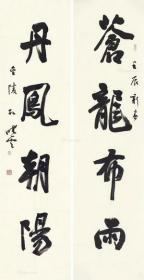 蒼龍布雨
壬辰新春
丹鳳朝陽
金陵